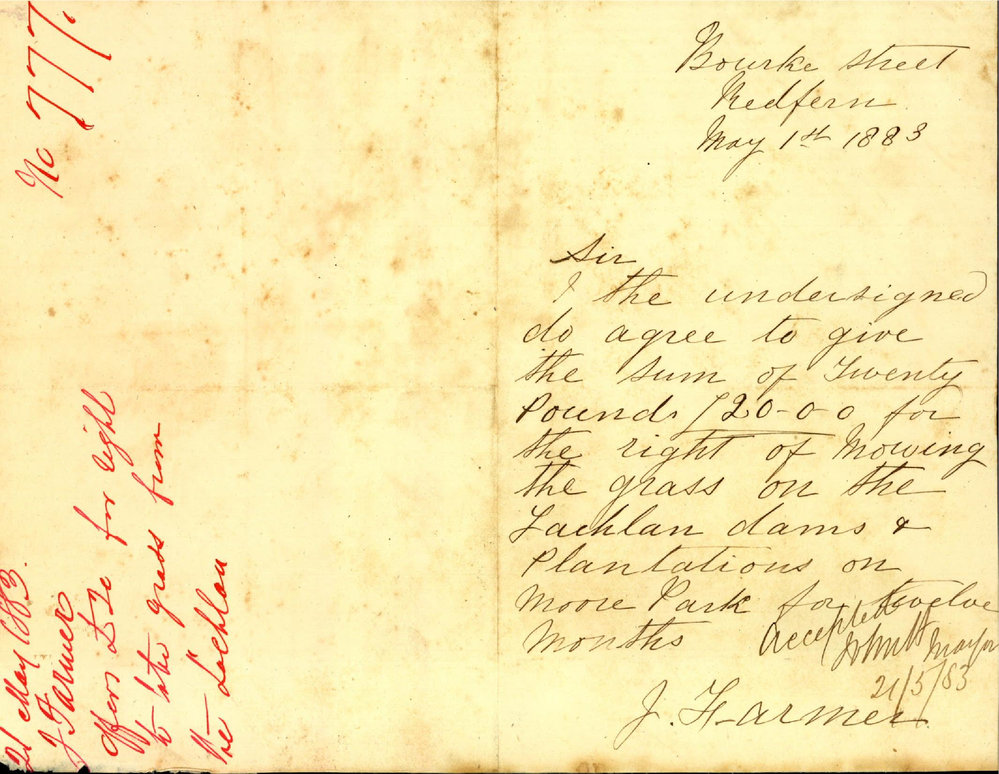 Bourke street
Redfern
May 1st 1883
Sir
I the undersigned
do agree to give
the sum of Twenty
Pounds £20-0-0 for
the right of Mowing
the grass on the
Lachlan dams &
Plantations on
Moore Park for twelve
Months
Accepted
Mayor
21/5/83
J. Farmer
No 777.
21 May 1883.
J Farmer
offers £20 for right
to take grass from
the Lachlan